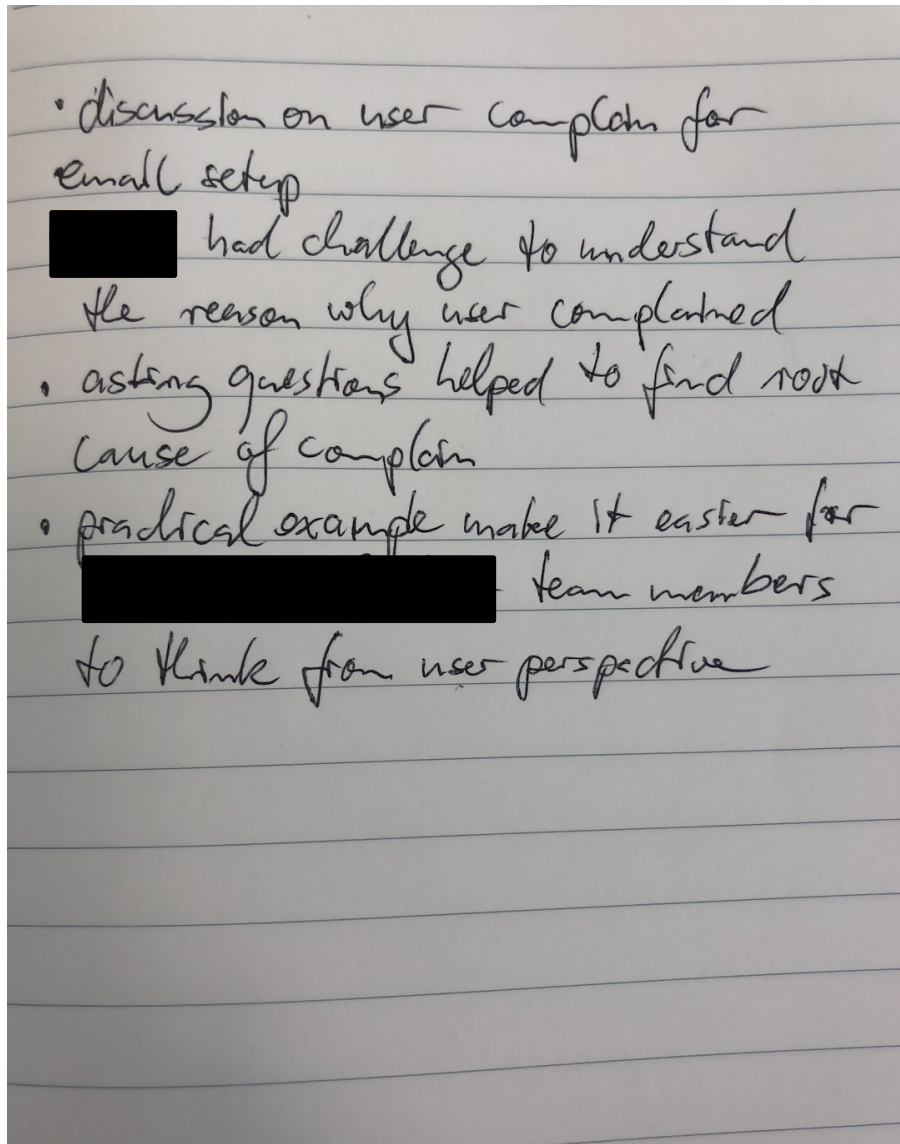 · discussion on user complain for
email setup
had challenge to understand
the reason why user complained
· asking questions helped to find root
cause of complain
· practical example make it easier for
team members
to think from user perspective